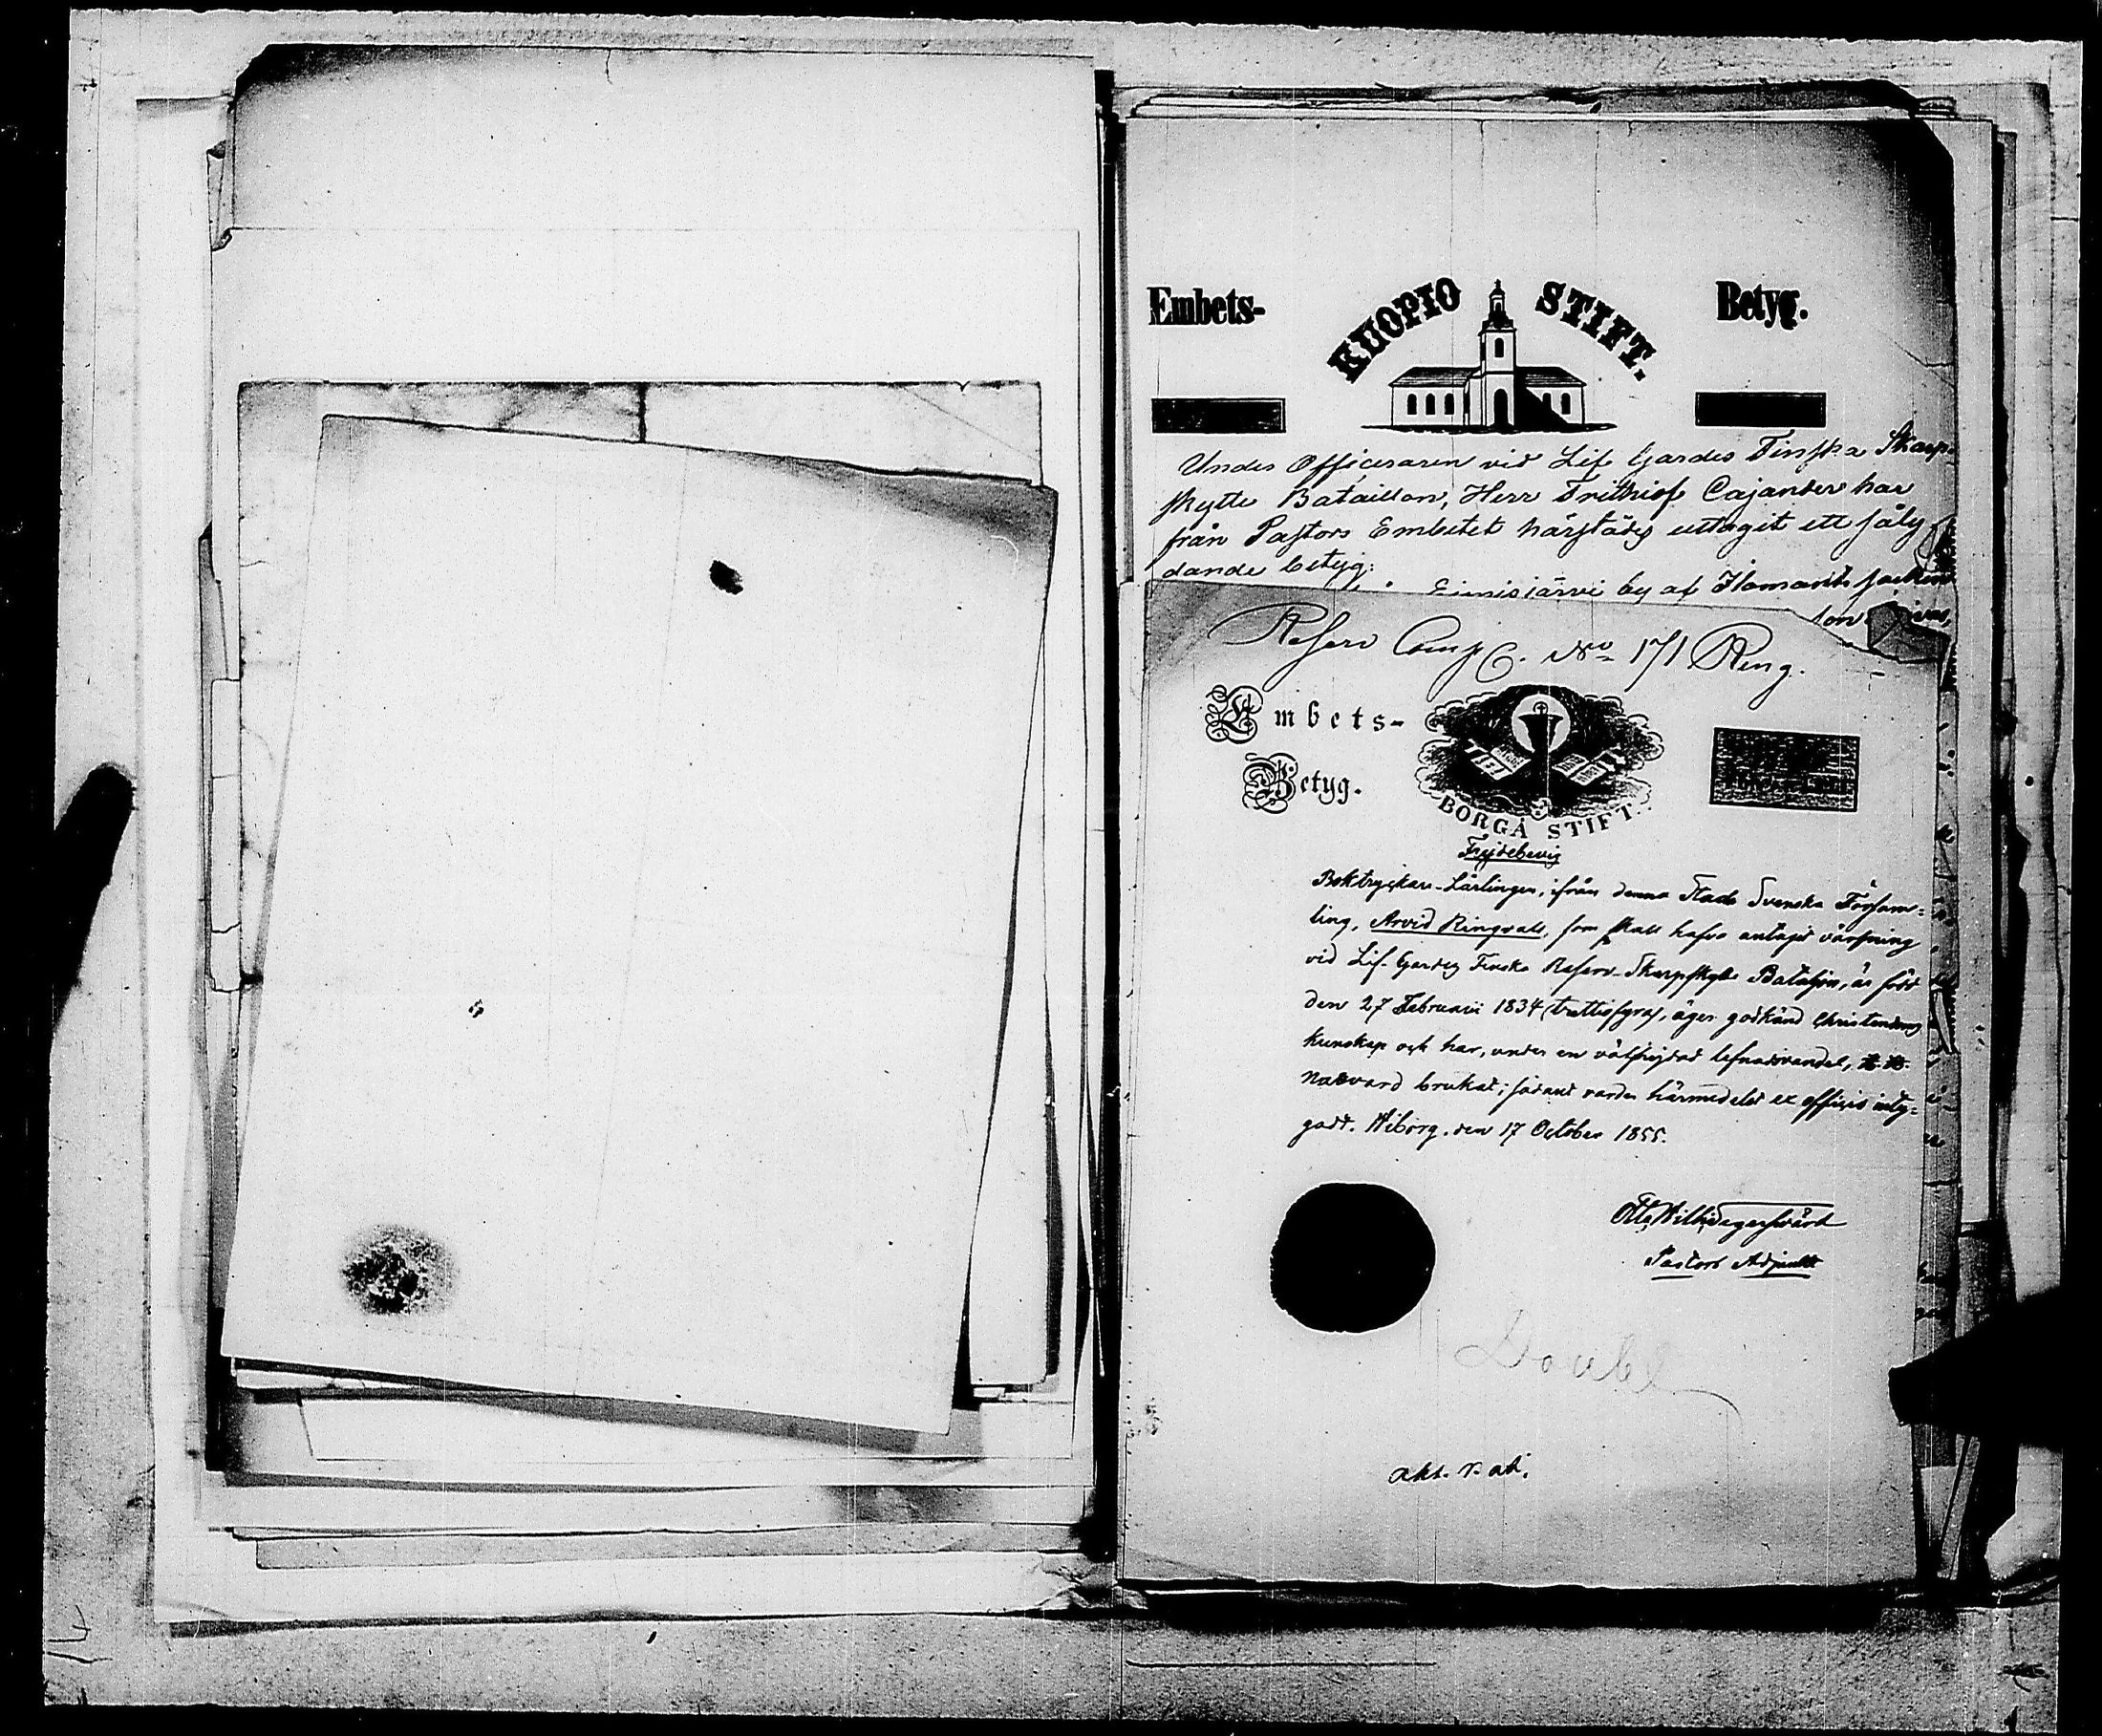 Embets-
KUOPIO STIFT.
Betyg.
Under Officeraren vid Lif Gardes Finska Skarp-
skytte Bataillon, Herr Frithiof Cajander har
från Pastors Embetet härstädes uttagit ett såly
dande betyg:
by af Ilomants socken
Reserv Comp. No 171 Ring.
Embets-
Betyg.
BORGÅ STIFT.
Frejdebevis
Boktryckare-Lärlingen, ifrån denna Stads Svenska Församl-
ling, Arvid Ringvall, som skall hafva antagit värfning
vid Lif-Gardes Finska Reserv-Skarpskytte Bataljon, är född
den 27 Februarii 1834 (trettiofyra), äger godkänd Christendoms
kunskap och har, under en välfrejdad lefnadsvandel, H. H.
Nattvard brukat; sådant varder härmedelst ex officio inty-
gadt. Wiborg, den 17 October 1855.
Otto Wilh
Pastors Adjunkt
Doubl